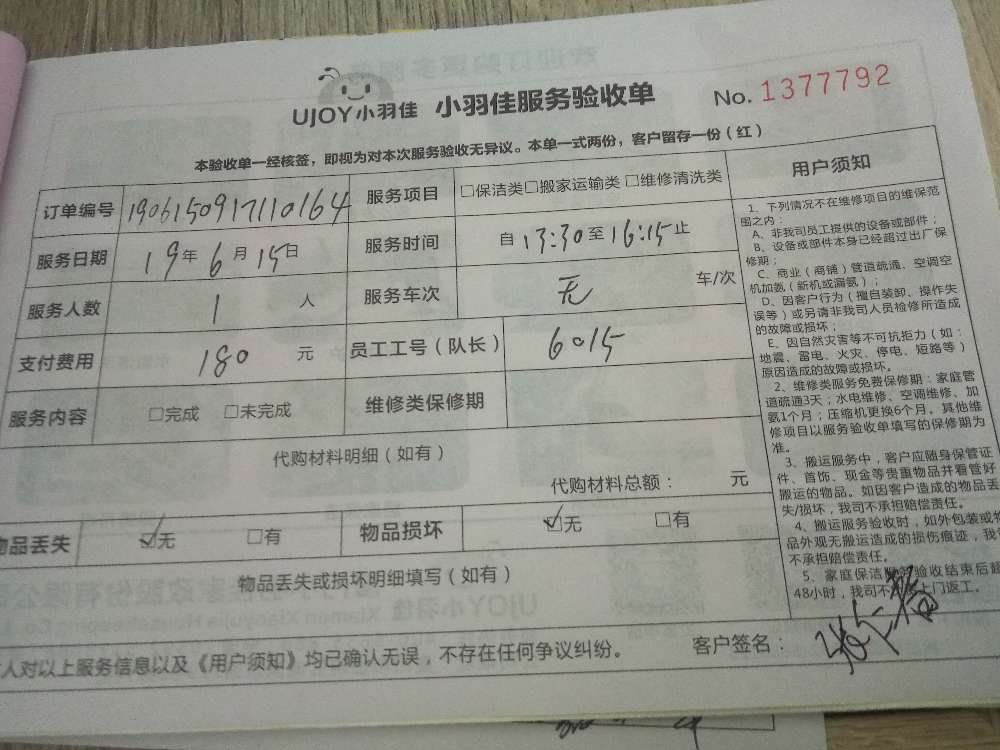 UJOY小羽佳 小羽佳服务验收单 No. 1377792
本验收单一经核签，即视为对本次服务验收无异议。本单一式两份，客户留存一份（红）
订单编号 1906150917110164 服务项目 □保洁类□搬家运输类 □维修清洗类
服务日期 19年6月15日 服务时间 自13:30至16:15止
服务人数 1 人 服务车次 无 车/次
支付费用 180 元 员工工号（队长） 6015
服务内容 □完成 □未完成 维修类保修期
代购材料明细（如有）
代购材料总额： 元
物品丢失 ☑无 □有 物品损坏 ☑无 □有
物品丢失或损坏明细填写（如有）
人对以上服务信息以及《用户须知》均已确认无误，不存在任何争议纠纷。 客户签名：
用户须知
1、下列情况不在维修项目的维保范
围之内：
A、非我司员工提供的设备或部件；
B、设备或部件本身已经超过出厂保
修期；
C、商业（商铺）管道疏通、空调空
机加氨（新机或漏氨）；
D、因客户行为（擅自装卸、操作失
误等）或另请非我司人员检修所造成
的故障或损坏；
E、因自然灾害等不可抗拒力（如：
地震、雷电、火灾、停电、短路等）
原因造成的故障或损坏。
2、维修类服务免费保修期：家庭管
道疏通3天；水电维修、空调维修、加
氨1个月；压缩机更换6个月。其他维
修项目以服务验收单填写的保修期为
准。
3、搬运服务中，客户应随身保管证
件、首饰、现金等贵重物品并看管好
搬运的物品。如因客户造成的物品丢
失/损坏，我司不承担赔偿责任。
4、搬运服务验收时，如外包装或
品外观无搬运造成的损伤痕迹，我
不承担赔偿责任。
5、家庭保洁服务验收结束后超
48小时，我司不 上门返工。